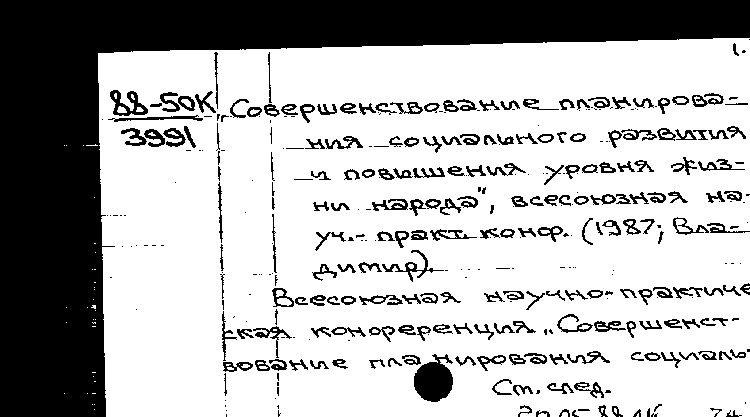 1.
88-50К „Совершенствование планирова-
3991 ния социального развития
и повышения уровня жиз-
ни народа", всесоюзная на-
уч.- практ. конф. (1987; Вла-
димир).
Всесоюзная научно-практиче
ская конференция „Совершенст-
вование планирования социаль-
См. след.